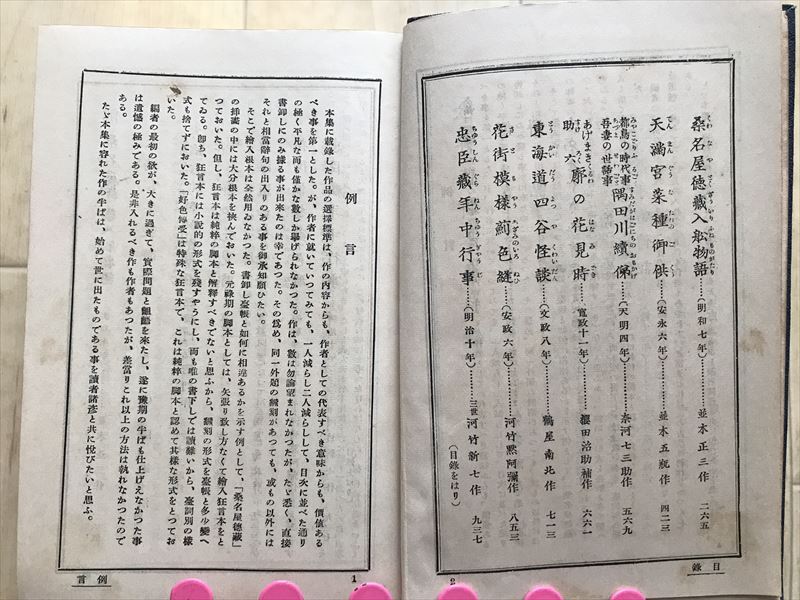 桑名屋徳蔵入舩物語……(明和七年)……並木正三作 二六五
天滿宮菜種御供……(安永六年)……並木五瓶作 四二三
都鳥の時代事
吾妻の世話事
隅田川續俤……(天明四年)……奈河七三助作 五六九
あげまき
助六
廓の花見時……(寛政十一年)……櫻田治助補作 六六一
東海道四谷怪談……(文政八年)……鶴屋南北作 七一三
花街模樣薊色縫……(安政六年)……河竹默阿彌作 八五三
忠臣藏年中行事……(明治十年)……三世河竹新七作 九三七
(目錄をはり)
目錄
2
例言
本集に載錄した作品の選擇標準は、作の内容からも、作者としての代表すべき意味からも、價値ある
べき事を第一とした。が、作者に就いていつてみても、一人減らし二人減らしして、目次に並べた通り
の極く平凡な而も僅かな數しか擧げられなかつた。作は、數は勿論望まれなかつたが、たゞ悉く、直接
書卸しにのみ據る事が出來たのは幸であつた。その爲め、同一外題の飜刻があつても、或もの以外には
それと相當辭句の出入りのある事を御承知願ひたい。
そこで繪入根本は全然用ゐなかつた。書卸し臺帳と如何に相違あるかを示す例として、「桑名屋德藏」
の挿畫の中には大分根本を挾んでおいた。元祿期の脚本としては、矢張り致し方なくて繪入狂言本をと
つておいた。但し、狂言本は純粹の脚本と解釋すべきでないと思ふから、飜刻の形式を臺帳と多少變へ
てゐる。卽ち、狂言本には小說的の形式を殘すやうにし、而も唯の書下しでは讀難いから、臺詞別の樣
式も捨てずにおいた。「好色傳受」は特殊な狂言本で、これは純粹の脚本と認めて其樣な形式をとつてお
いた。
編者の最初の欲が、大きに過ぎて、實際問題と齟齬を來たし、遂に豫期の半ばも仕上げえなかつた事
は遺憾の極みである。是非入れるべき作も作者もあつたが、差當りこれ以上の方法は執れなかつたので
ある。
たゞ本集に容れた作の半ばは、始めて世に出たものである事を讀者諸彦と共に悅びたいと思ふ。
例言
1